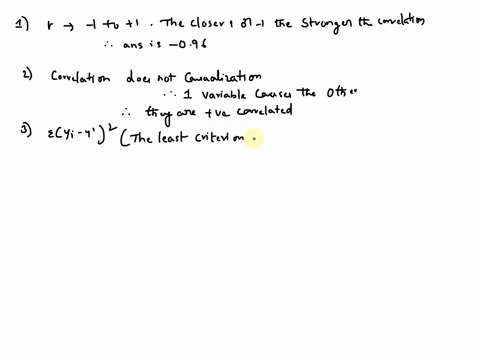 1) r → -1 to +1 . The closer 1 or -1 the stronger the correlation
∴ ans is -0.96
2) Correlation does not Causalization
∴ 1 variable causes the other
∴ they are +ve correlated
3) Σ(yi - y')² (The least criterion